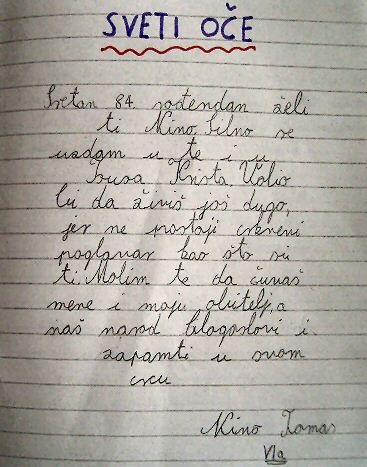 SVETI OČE
Sretan 84. rođendan želi
ti Nino. Silno se
uzdam u te i u
Isusa Krista. Volio
bi da živiš još dugo,
jer ne postoji crkveni
poglavar kao što si
ti. Molim te da čuvaš
mene i moju obitelj, a
naš narod blagoslovi i
zapamti u svom
srcu
Nino Tomas
VIa